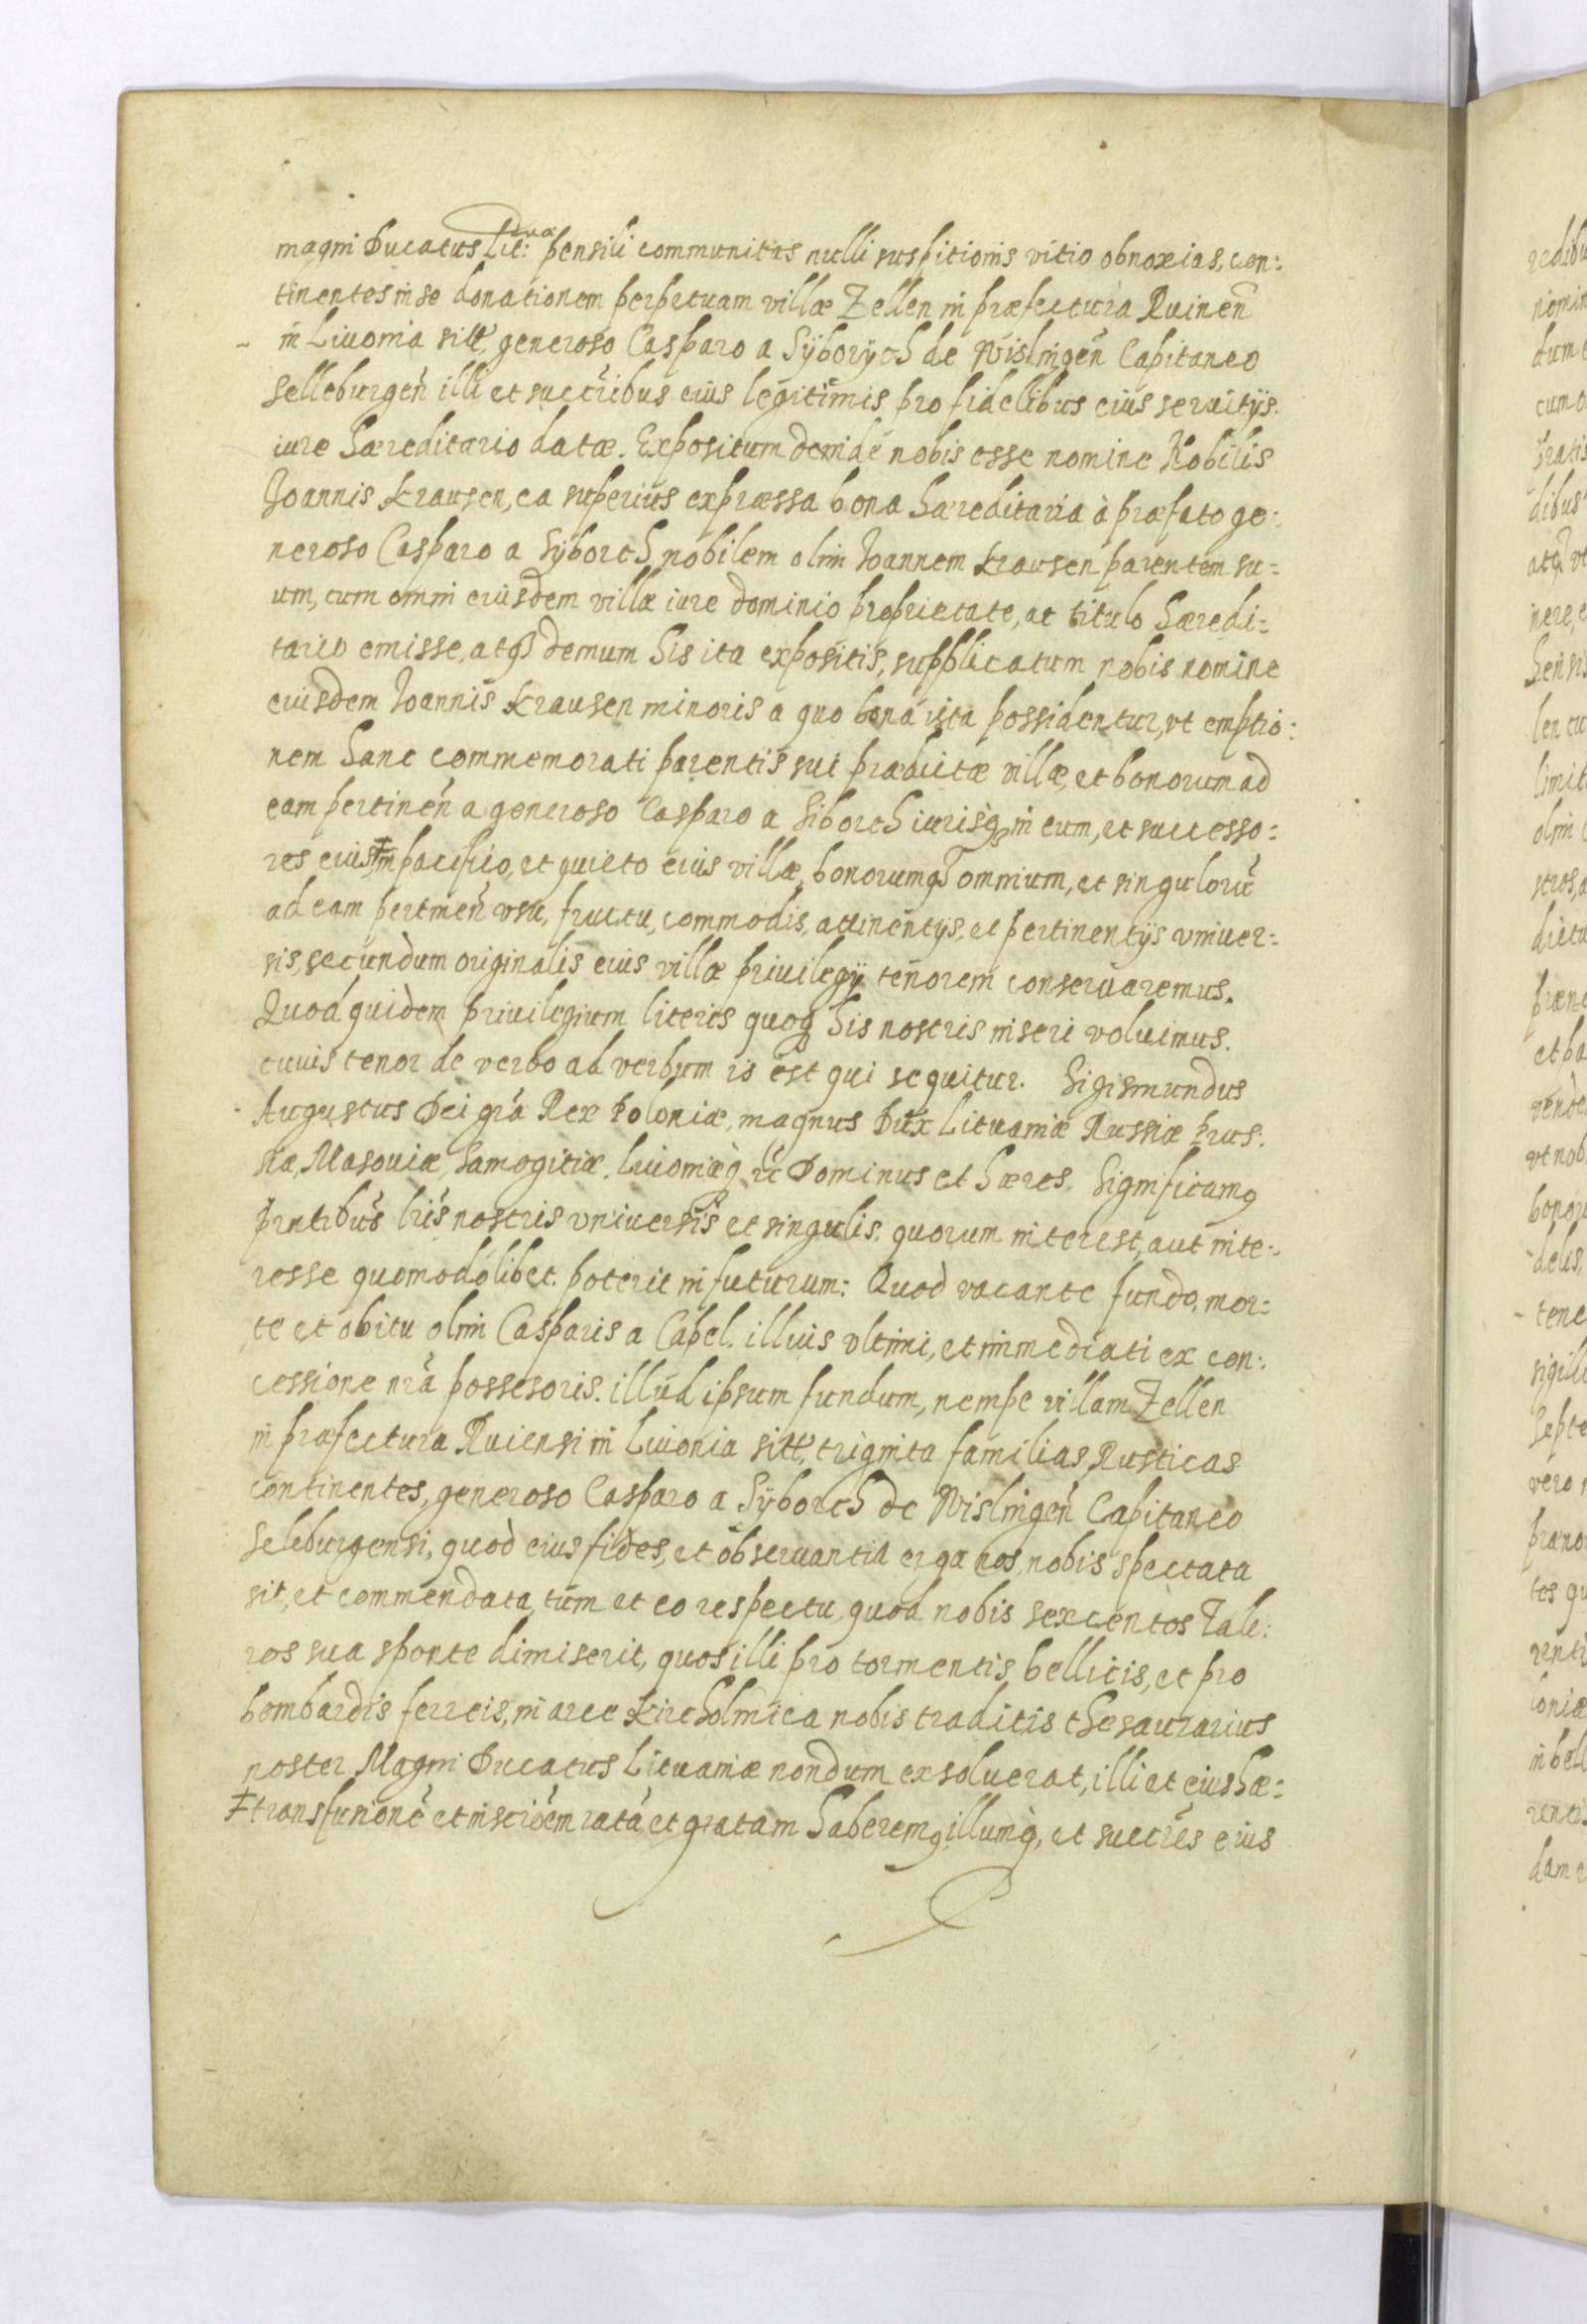 magni Ducatus Lit: pensili communitas nulli suspitionis vitio obnoxias, con:
tinentes in se donationem perpetuam villæ Zellen in præfectura Ruineñ
in Livonia sitæ, generoso Casparo a Sÿborÿch de Wislingeñ Capitaneo
Selleburgeñ illi et succribus eius legitimis pro fidelibus eius seruitijs.
iure hæreditario datæ. Expositum deinde nobis esse nomine Nobilis
Joannis Krausen, ea superius expræssa bona hæreditaria à præfato ge:
neroso Casparo a Sÿborch nobilem olim Joannem Krausen parentem su=
um, cum omni eiusdem villæ iure dominio proprietate, ac titulo hæredi=
tario emisse, atq demum his ita expositis, supplicatum nobis nomine
eiusdem Joannis Krausen minoris a quo bona ista possidentur, vt emptio:
nem hanc commemorati parentis sui prædictæ villæ, et bonorum ad
eam pertineñ a generoso Casparo a Siborch iurisq in eum, et successo:
res eius ‡ in pacifico, et quieto eius villæ, bonorumq omnium, et singulorũ
ad eam pertineñ vsu, fructu, commodis, attinentijs, et pertinentijs vniuer=
sis, secundum originalis eius villæ priuilegij tenorem conseruaremus.
Quod quidem priuilegium literis quoq his nostris inseri voluimus.
cuius tenor de verbo ad verbum is est qui sequitur. Sigismundus
Augustus Dei gra Rex Poloniæ, magnus Dux Lituaniæ Russiæ Prus:
siæ, Masouiæ, Samogitiæ, Liuoniæq ec Dominus et hæres. Significamq
pntibus lris nostris vniuersis et singulis. quorum interest, aut inte:
resse quomodolibet. poterit in futurum: Quod vacante fundo, mor:
te et obitu olim Casparis a Capel. illius vltimi, et immediati ex con:
cessione nra possesoris. illud ipsum fundum, nempe villam Zellen
in præfectura Ruiensi in Liuonia sitæ, triginta familias Rusticas
continentes, generoso Casparo a Sÿborch de Wislingeñ Capitaneo
Seleburgensi, quod eius fides, et obseruantia erga nos, nobis spectata
sit, et commendata, tum et eo respectu, quod nobis sexcentos Tale:
ros sua sponte dimiserit, quos illi pro tormentis bellicis, et pro
bombardis ferreis, in arce Kircholmica nobis traditis thesaurarius
noster Magni Ducatus Lituaniæ nondum exsoluerat, illi et eius hæ=
‡ transfusionẽ et inscriõem ratã et gratam haberemq, illumq, et succres eius